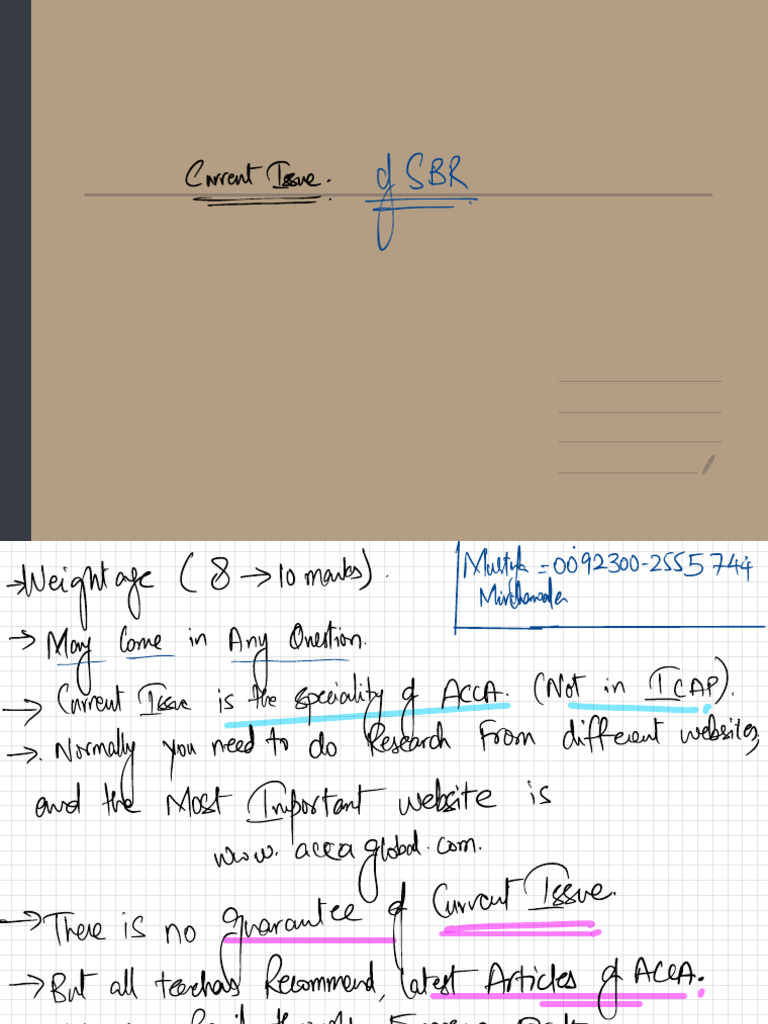 Current Issue. of SBR
Mustafa = 0092300-2555744
Mirchawala
→ Weightage ( 8 → 10 marks).
→ May Come in Any Question.
→ Current Issue is the speciality of ACCA. (Not in ICAP).
→. Normally you need to do Research From different websites,
and the Most Important website is
www.accaglobal.com.
→ There is no guarantee of Current Issue.
→ But all teachers Recommend, latest Articles of ACCA.